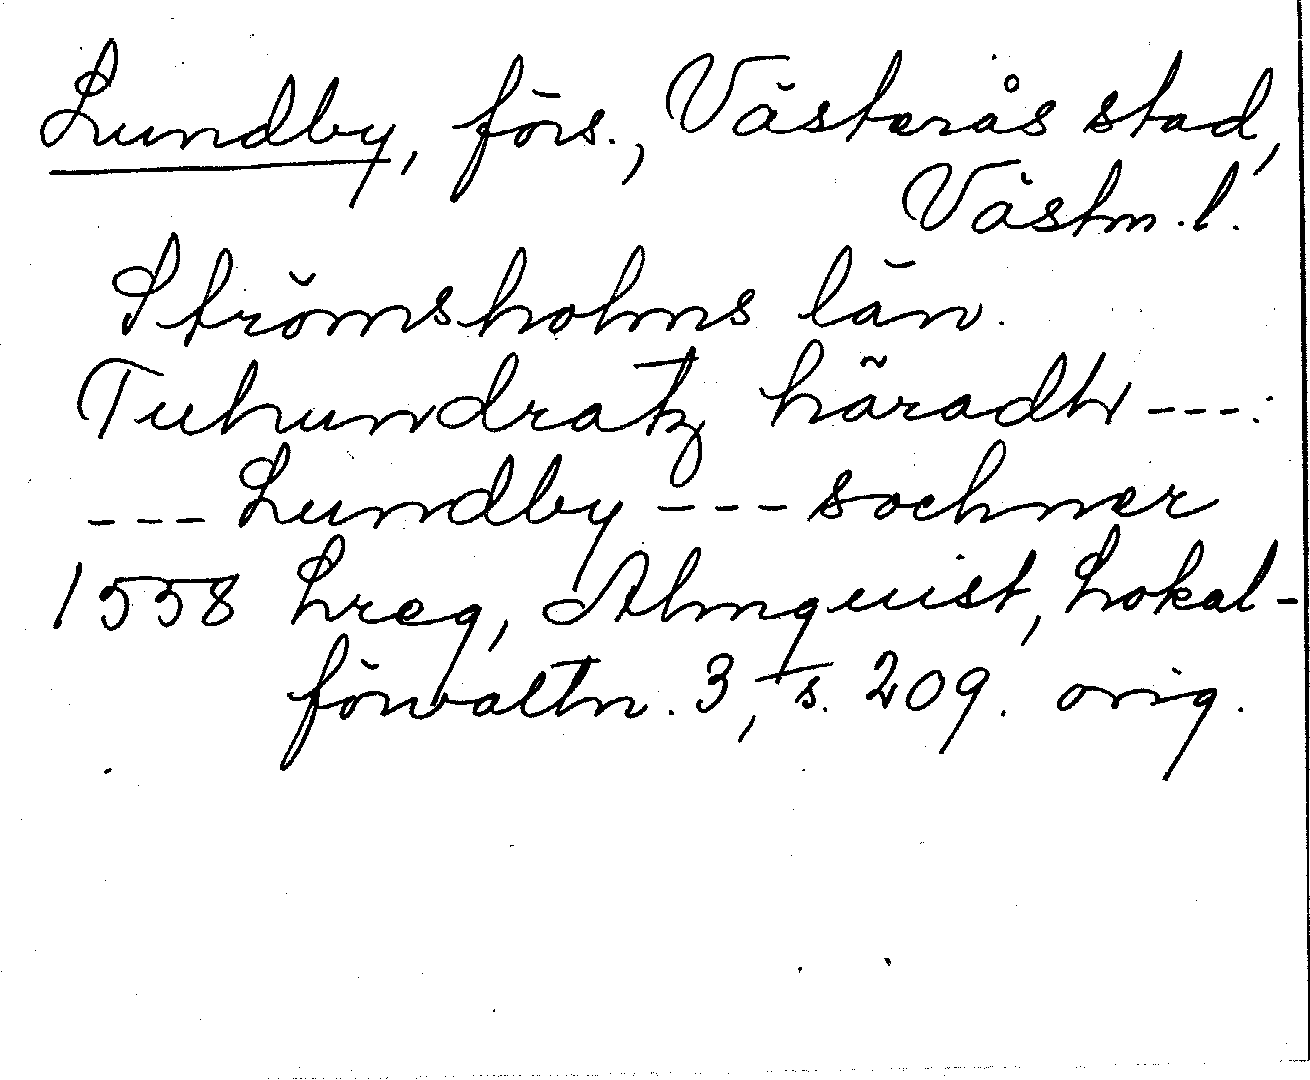 Lundby, förs., Västerås stad,
Västm. l.
Strömsholms län.
Tuhundratz häradh ---:
--- Lundby --- sochner
1558 Lreg, Almquist, Lokal-
förvaltn. 3, s. 209. orig.